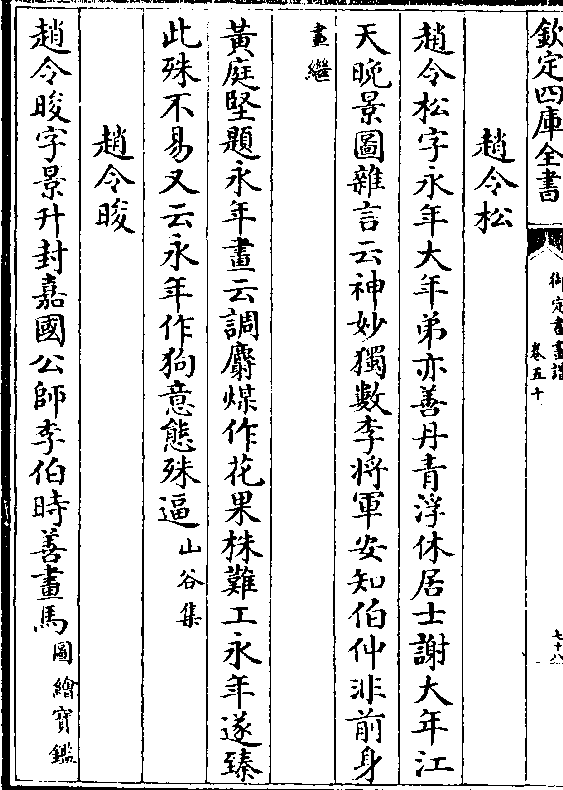 欽定四庫全書
御定書畫譜
卷五十
七十八
趙令松
趙令松字永年大年弟亦善丹青浮休居士謝大年江
天晚景圖雜言云神妙獨數李將軍安知伯仲非前身
畫繼
黃庭堅題永年畫云調麝煤作花果株難工永年遂臻
此殊不易又云永年作狗意態殊逼山谷集
趙令晙
趙令晙字景升封嘉國公師李伯時善畫馬圖繪寶鑑